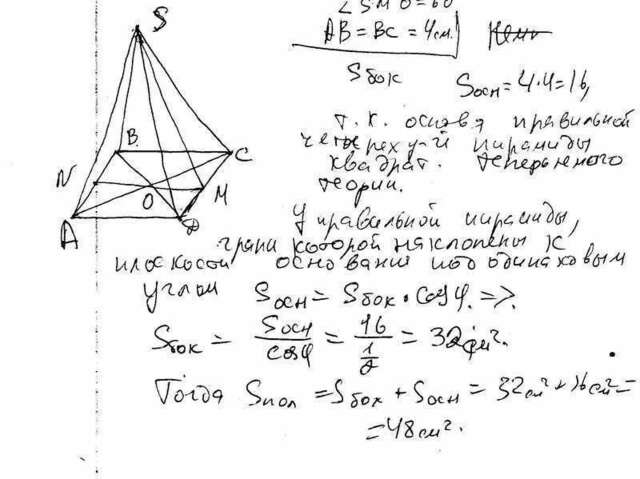 ∠SMO=60
AB = BC = 4см.
Sбок
Sосн = 4·4 = 16,
т.к. основа правильной
четырех у-й пирамиды
квадрат. теперь немного
теории.
У правильной пирамиды,
грани которой наклонены к
плоскости основания под одинаковым
углом Sосн = Sбок · cosφ. =>.
Sбок = Sосн/cosφ = 16/(1/2) = 32см².
Тогда Sпол = Sбок + Sосн = 32см² + 16см² =
= 48см².
S
B
C
N
O
M
A
D